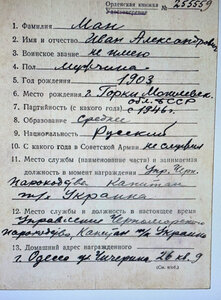 Орденская книжка № 255559
Удостоверение
1. Фамилия Ман
2. Имя и отчество Иван Александрович
3. Воинское звание не имею
4. Пол Мужчина
5. Год рождения 1903
6. Место рождения г. Горки Могилевск.
обл. БССР
7. Партийность (с какого года) с 1946 г.
8. Образование Среднее
9. Национальность Русский
10. С какого года в Советской Армии не служил
11. Место службы (наименование части) и занимаемая
должность в момент награждения Упр. Черн.
пароходства Капитан
т/х Украина
12. Место службы и должность в настоящее время
Управление Черноморского
пароходства Капитан т/х Украина
13. Домашний адрес награжденного
г. Одесса ул Чичерина 26 кв. 9
(См. на об.)